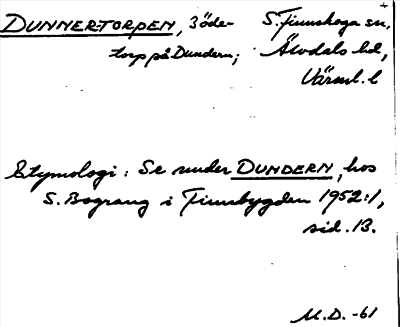 DUNNERTORPEN, 3 öde-
torp på Dundern;
S. Finnskoga sn,
Älvdals hd,
Värml. l
Etymologi: Se under DUNDERN, hos
S. Bograng i Finnbygden 1952:1,
sid. 13.
M.D. -61